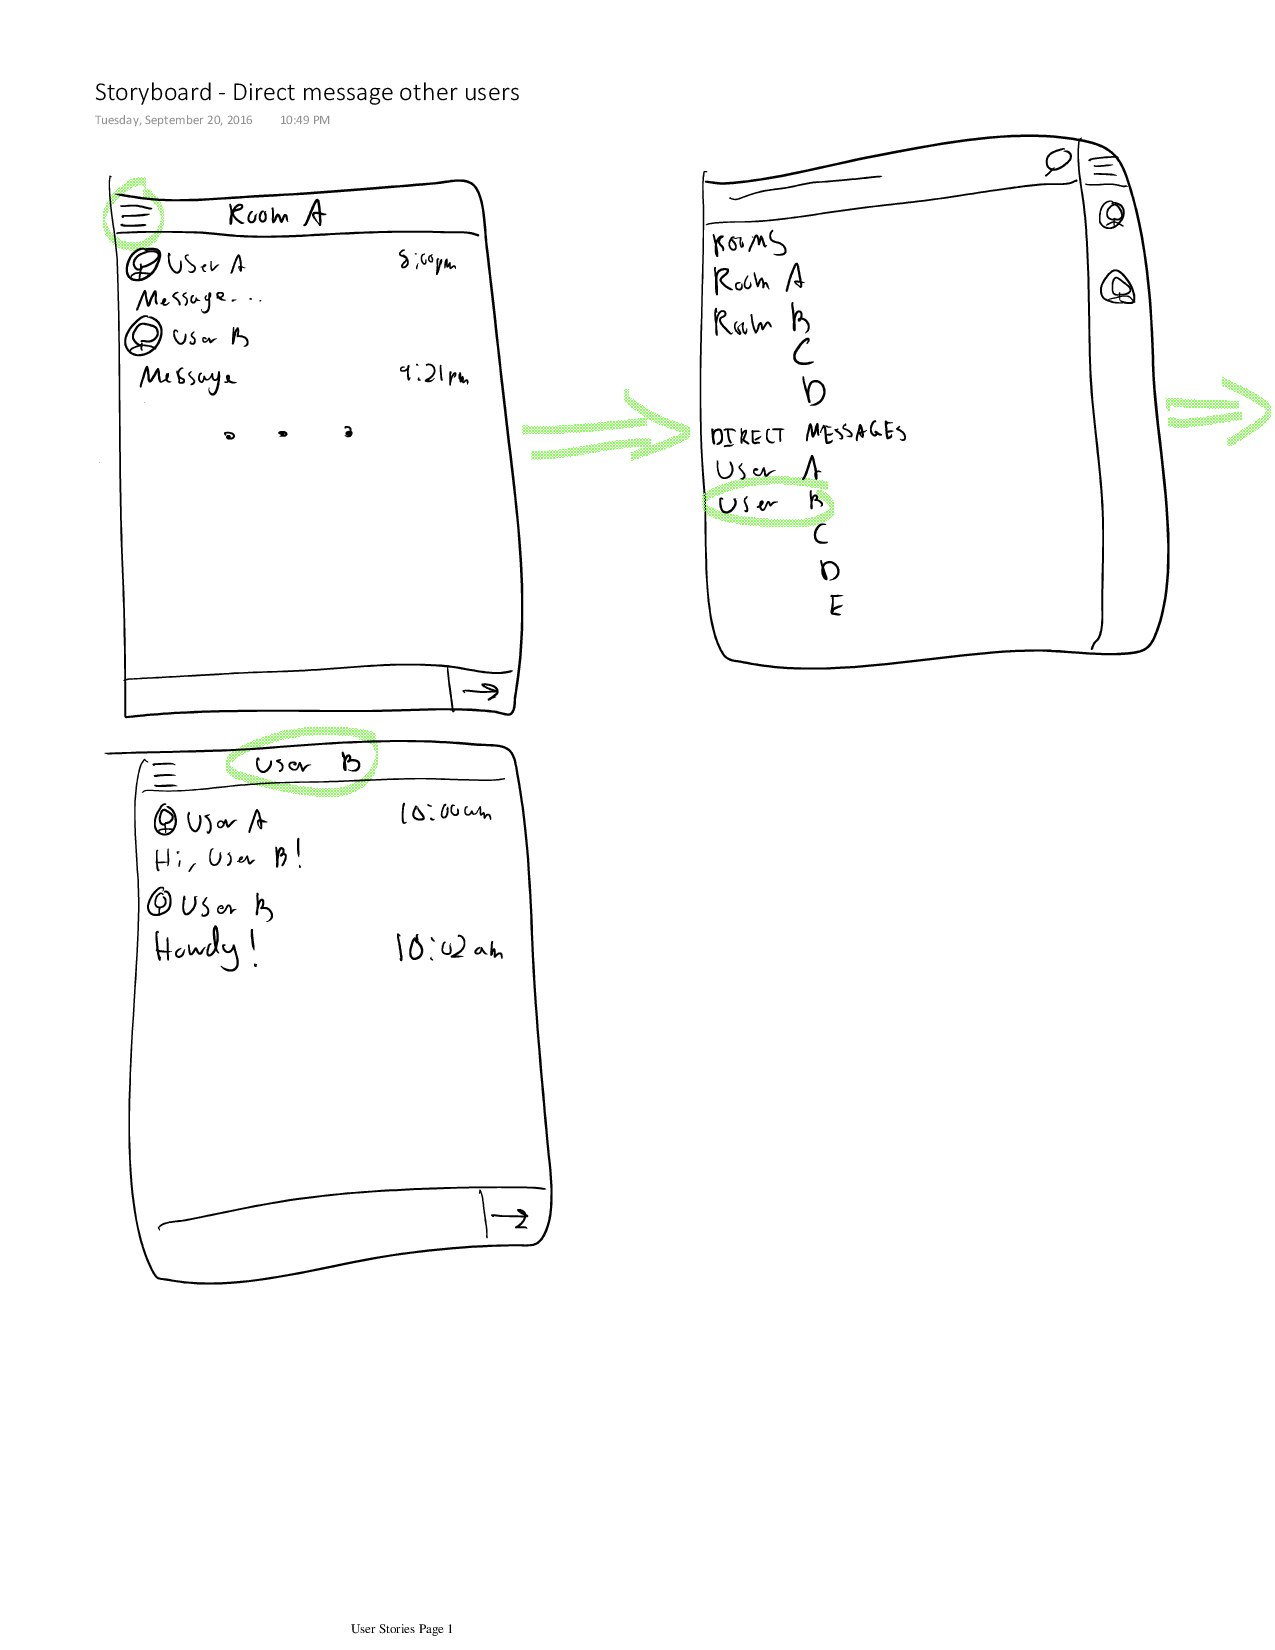 Storyboard - Direct message other users
Tuesday, September 20, 2016 10:49 PM
Room A
User A 8:00pm
Message...
User B
Message 9:21pm
ROOMS
Room A
Room B
C
D
DIRECT MESSAGES
User A
User B
C
D
E
User B
User A 10:00am
Hi, User B!
User B
Howdy! 10:02am
User Stories Page 1